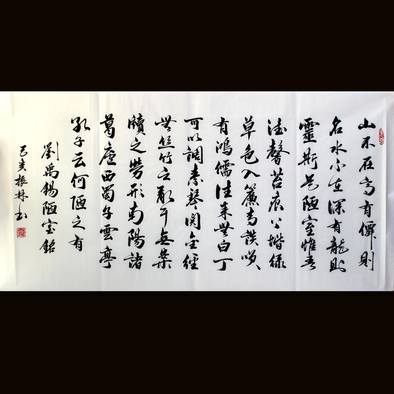 山不在高有僊則
名水不在深有龍則
靈斯是陋室惟吾
德馨苔痕上堦綠
草色入簾青談笑
有鴻儒往來無白丁
可以調素琴閱金經
無絲竹之亂耳無案
牘之勞形南陽諸
葛廬西蜀子雲亭
孔子云何陋之有
劉禹錫陋室銘
己亥振林书